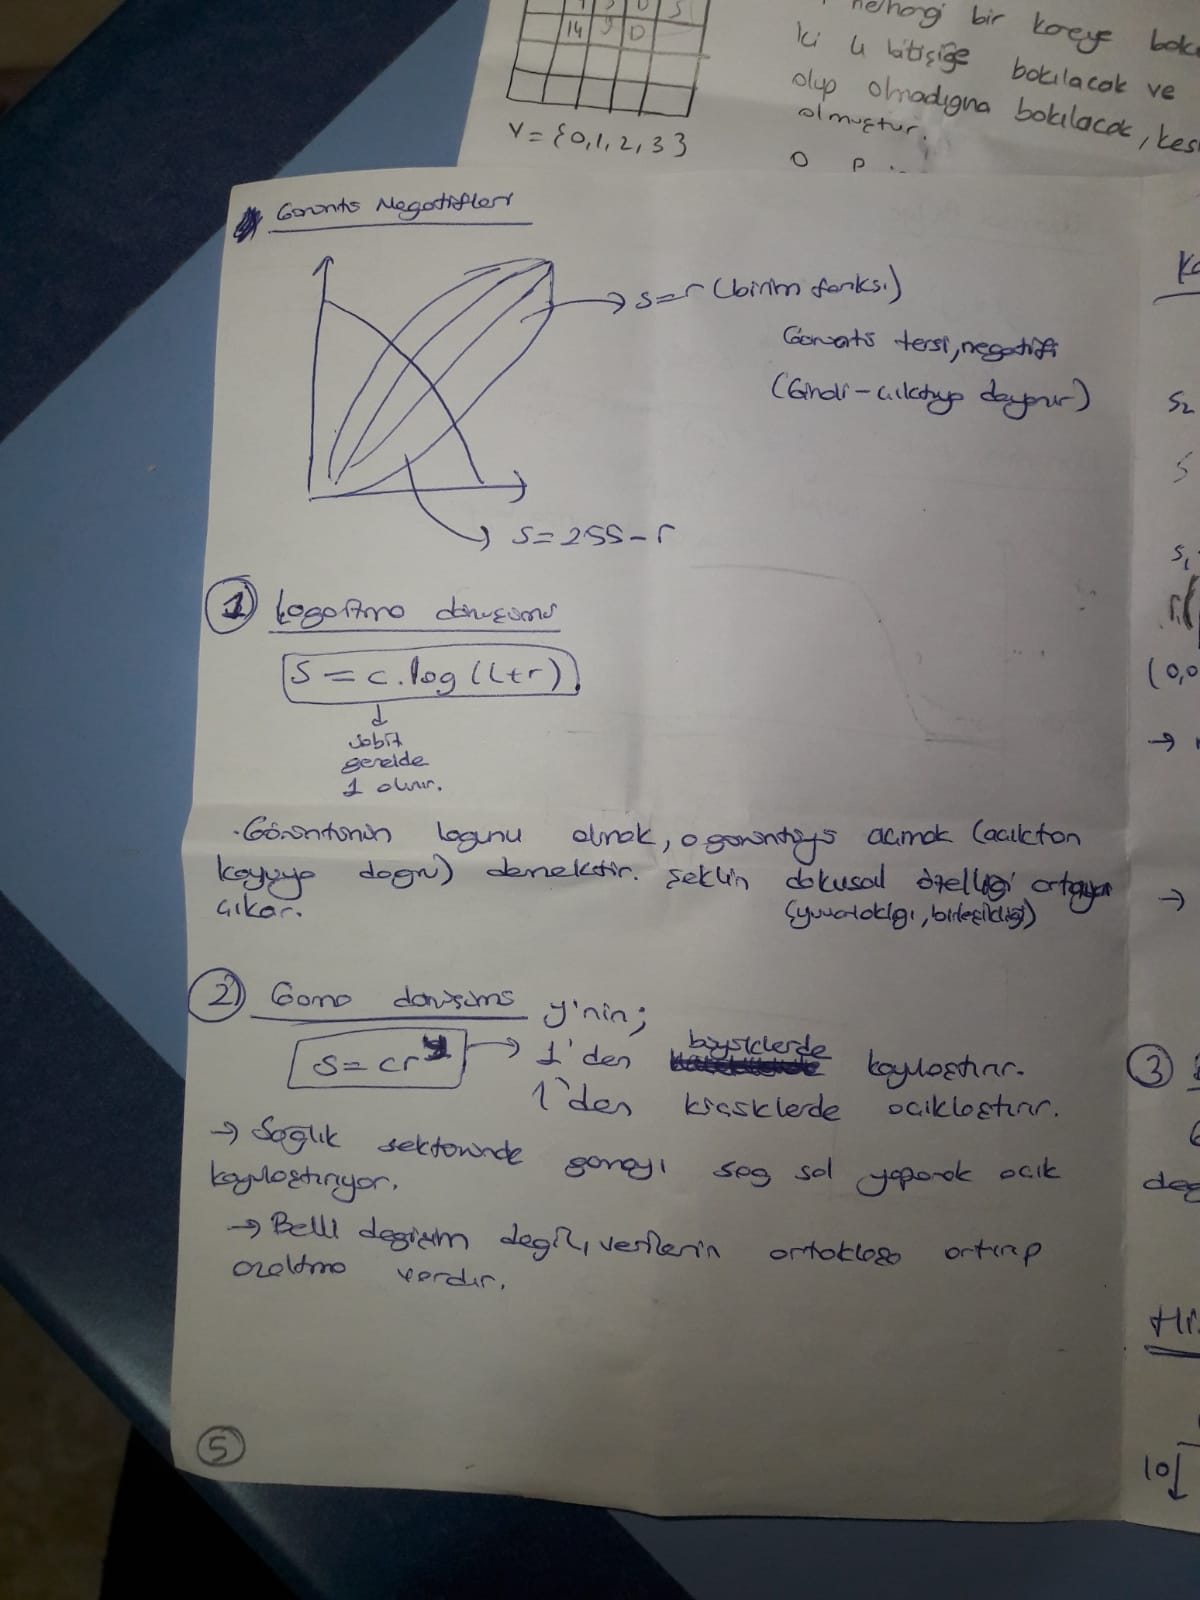 14 9 D
V = {0, 1, 2, 3}
bir
iki 4 bitişiğe bakılacak ve
olup olmadığına bakılacak, kes
olmuştur.
Görüntü Negatifleri
s=r (birim fonks.)
Görüntü tersi, negatifi
(Girdi-çıktıya dayanır)
s=255-r
1 Logaritma dönüşümü
s = c.log(1+r)
sabit
genelde
1 alınır.
Görüntünün logunu almak, o görüntüyü açmak (açıktan
koyuya doğru) demektir. Şeklin dokusal özelliği ortaya
çıkar. (yuvarlaklığı, birleşikliği)
2 Gama dönüşümü γ'nin;
s=crγ → 1'den büyüklerde koyulaştırır.
1'den küçüklerde açıklaştırır.
→ Sağlık sektöründe gamayı sağ sol yaparak açık
koyulaştırıyor.
→ Belli değişim değil, verilerin ortaklığa artırıp
azaltma vardır.
5
S2
S
S1
(0,0
→
→
3
değ
Hi
10